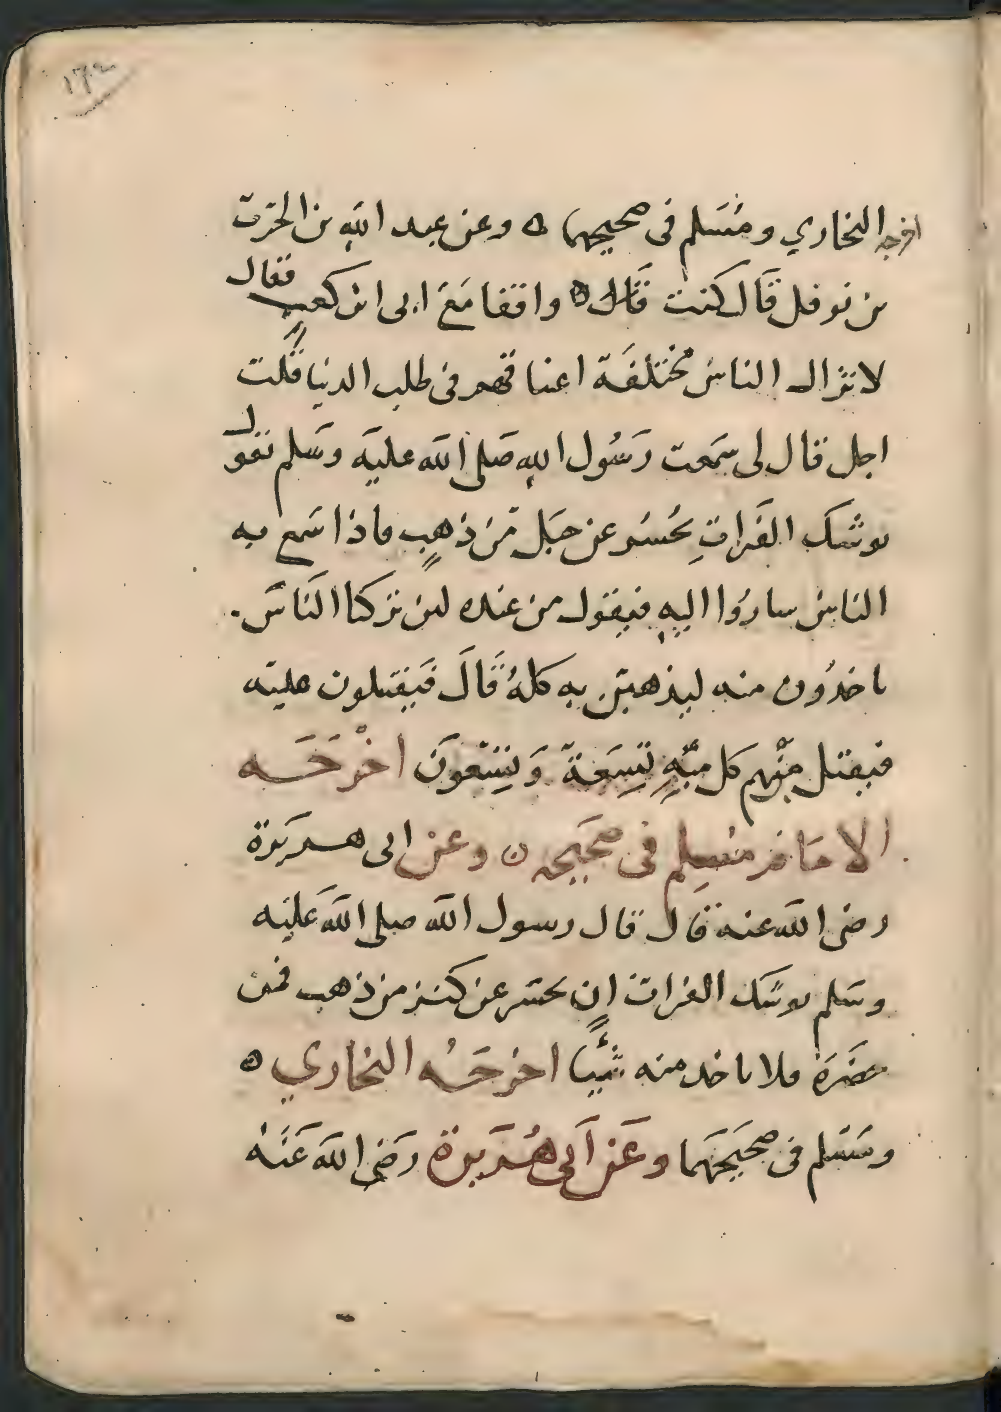 ١٦٢
اخرجه البخاري ومُسَلم فى صحيحهما ه وعن عبد الله بن الحرث
بن نوفل قَال كنت قَال ه واقفا مَعَ ابى ابن كعبٍ فقال
لا تزال الناس مختلفَة اعناقهم فى طلب الدنيا قُلت
اجل قال لى سَمعت رَسُول الله صَلى الله عليَه وسَلم يقول
يوشك الفَراتِ يحُسُر عن جبَل مّن ذهبٍ فاذا سَمع به
الناس سارُوا اليهِ فيقول من عنده لين تركنا الَناسَ
ياخدُون منه ليذهبَن به كلهُ قَالَ فَيقتلون عليه
فيقتل مِنْهم كل ميَّهِ تِسِعَة وَتِسْعونَ اخْرَجَه
الامَام مُسِلم فى صَحيَحه ن وعن ابى هريَرة
رضى الله عنه قَال قال رسول الله صلى الله عَليه
وسَلم يوشك الفرات انٍ يحسَر عن كنز من ذهب فمن
حضَرَة فلا ياخد منه شيًا اخرجَهُ البخاري ه
ومُسَلم فى صحَيحَهَما وعَن اَبى هُرَيرة رَضى الله عَنَهْ